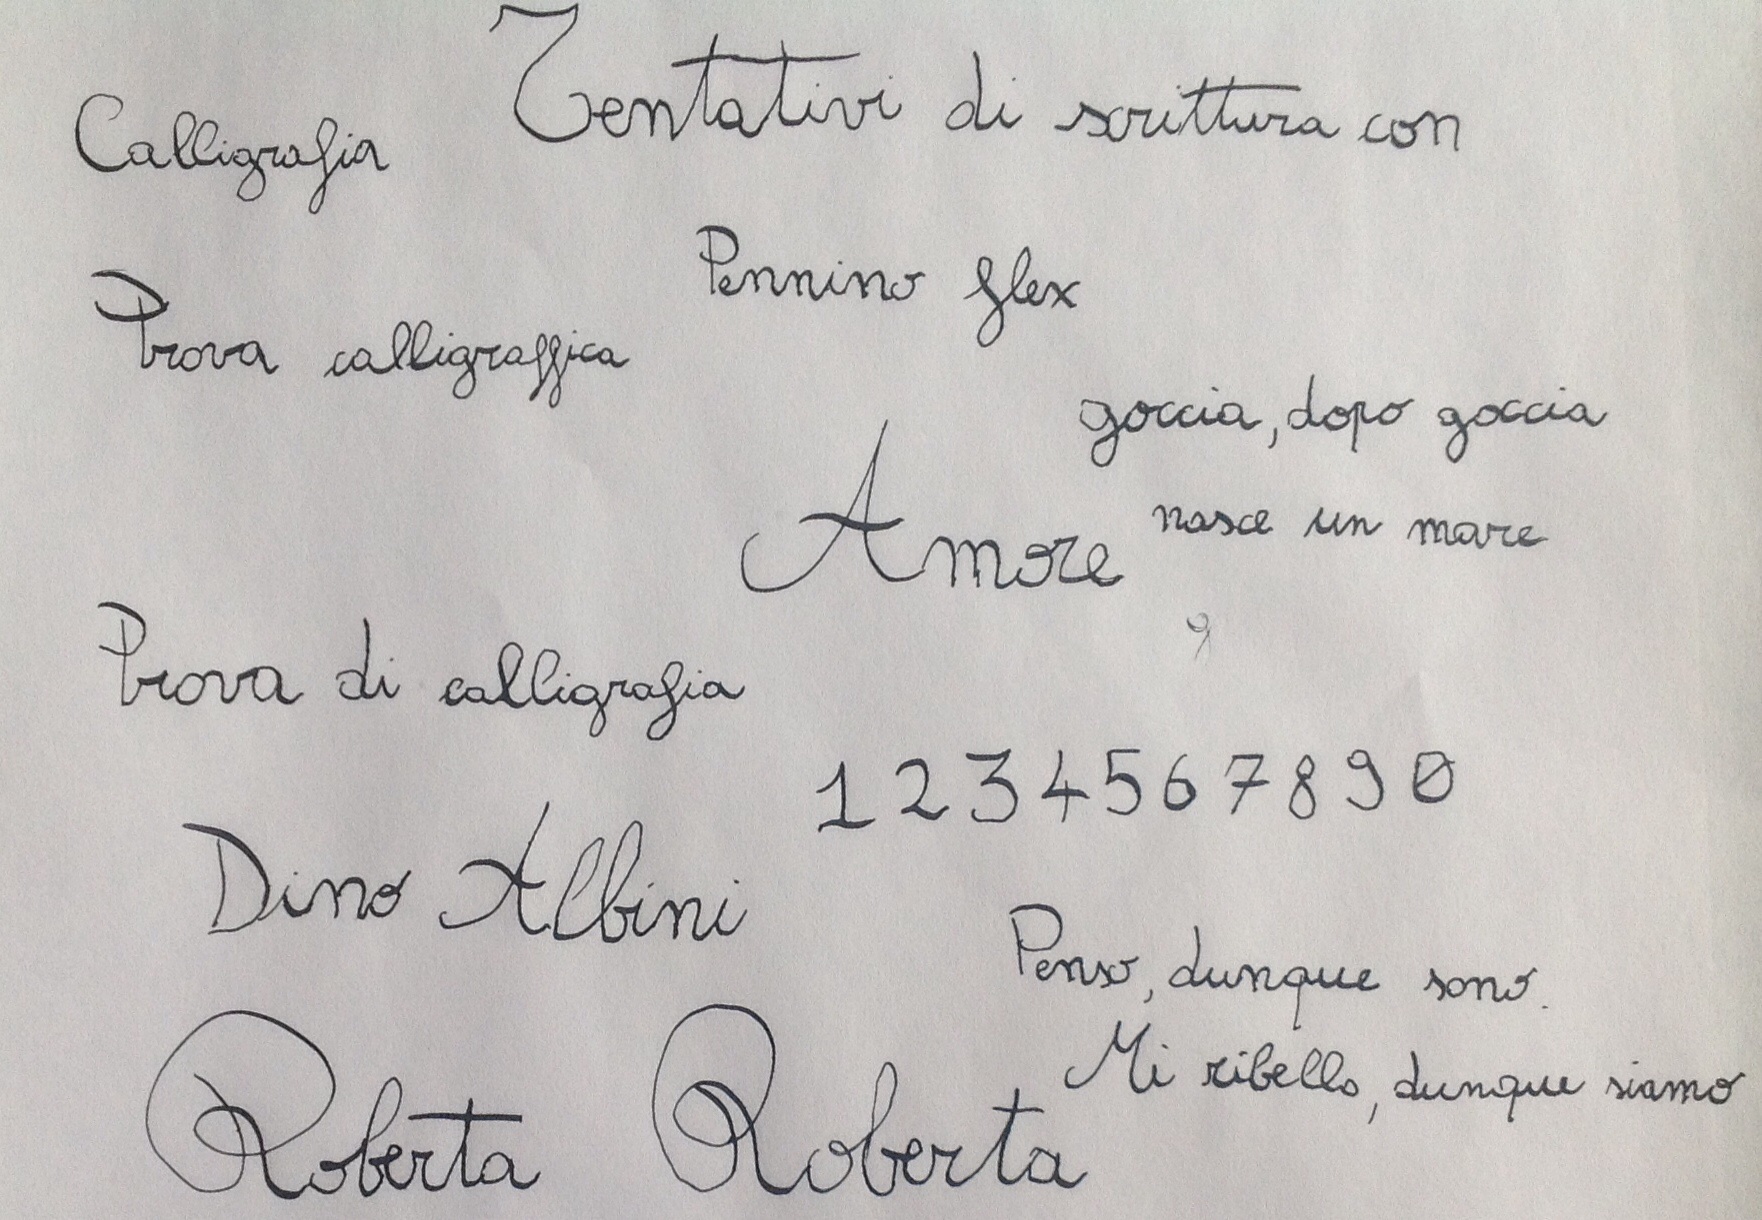 Tentativi di scrittura con
Calligrafia
Pennino flex
Prova calligraffica
goccia, dopo goccia
nasce un mare
Amore
Prova di calligrafia
1 2 3 4 5 6 7 8 9 0
Dino Albini
Penso, dunque sono.
Mi ribello, dunque siamo
Roberta Roberta